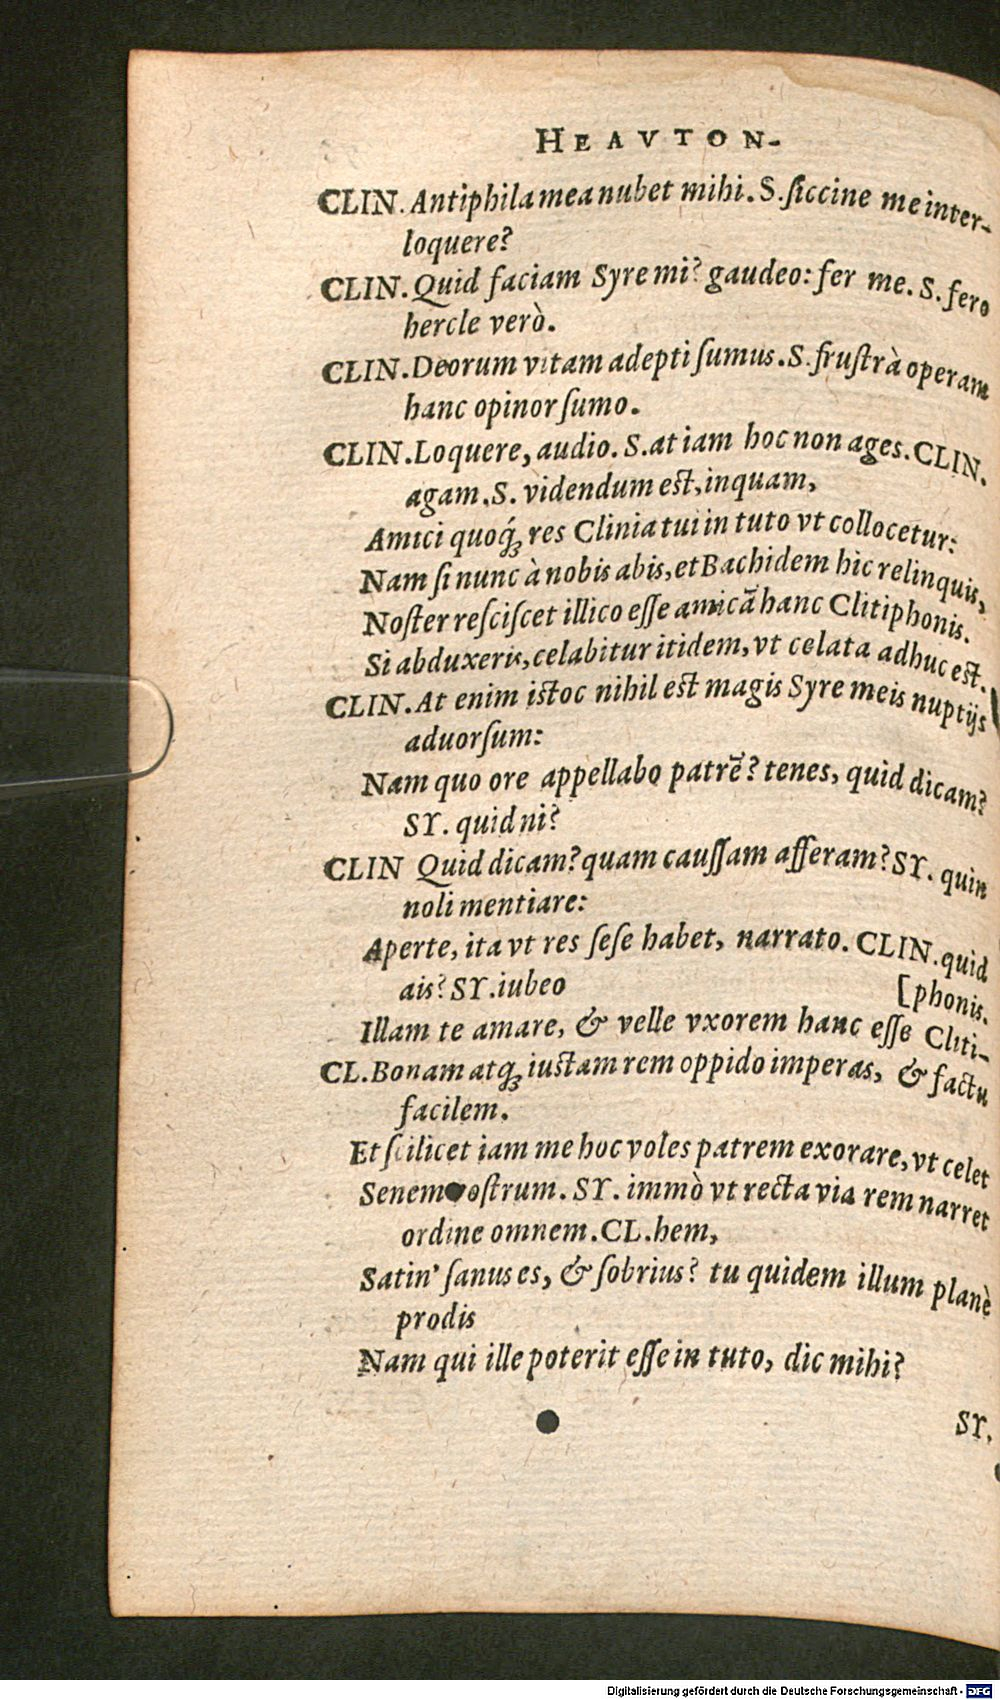 HEAVTON-
CLIN. Antiphila mea nubet mihi. S. ſiccine me inter-
loquere?
CLIN. Quid faciam Syre mi? gaudeo: fer me. S. fero
hercle verò.
CLIN. Deorum vitam adepti ſumus. S. fruſtrà operam
hanc opinor ſumo.
CLIN. Loquere, audio. S. at iam hoc non ages. CLIN.
agam. S. videndum est, inquam,
Amici quoq́ꝫ res Clinia tui in tuto vt collocetur:
Nam ſi nunc à nobis abis, et Bachidem hic relinquis,
Noſter reſciſcet illico eſſe amicã hanc Clitiphonis.
Si abduxeris, celabitur itidem, vt celata adhuc est.
CLIN. At enim istoc nihil est magis Syre meis nuptijs
aduorſum:
Nam quo ore appellabo patrẽ? tenes, quid dicam?
SY. quid ni?
CLIN Quid dicam? quam cauſſam afferam? SY. quin
noli mentiare:
Aperte, ita vt res ſeſe habet, narrato. CLIN. quid
ais? SY. iubeo
[phonis.
Illam te amare, & velle vxorem hanc eſſe Cliti-
CL. Bonam atqꝫ iustam rem oppido imperas, & factu
facilem.
Et ſcilicet iam me hoc voles patrem exorare, vt celet
Senem voſtrum. SY. immò vt recta via rem narret
ordine omnem. CL. hem,
Satin' ſanus es, & ſobrius? tu quidem illum planè
prodis
Nam qui ille poterit eſſe in tuto, dic mihi?
SY.
Digitalisierung gefördert durch die Deutsche Forschungsgemeinschaft - DFG